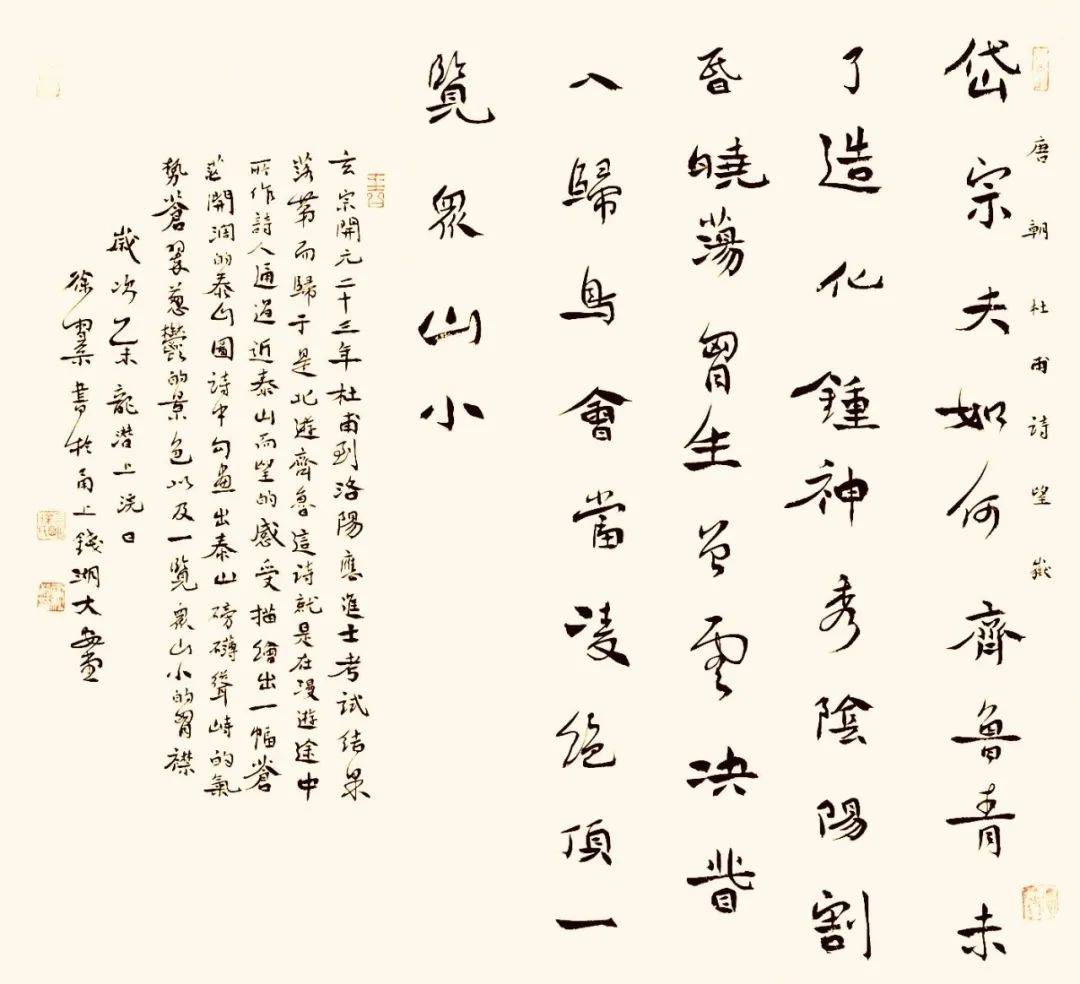 唐朝杜甫詩望嶽
岱宗夫如何齊魯青未
了造化鍾神秀陰陽割
昏曉蕩胷生曾雲決眥
入歸鳥會當凌絕頂一
覽眾山小
玄宗開元二十三年杜甫到洛陽應進士考試結果
落第而歸于是北遊齊魯這詩就是在漫遊途中
所作詩人通過近泰山而望的感受描繪出一幅蒼
茫開濶的泰山圖詩中勾畫出泰山磅礴聳峙的氣
勢蒼翠蔥鬱的景色以及一覽眾山小的胷襟
歲次乙未龍潛上浣日
徐書於甬上錢湖大